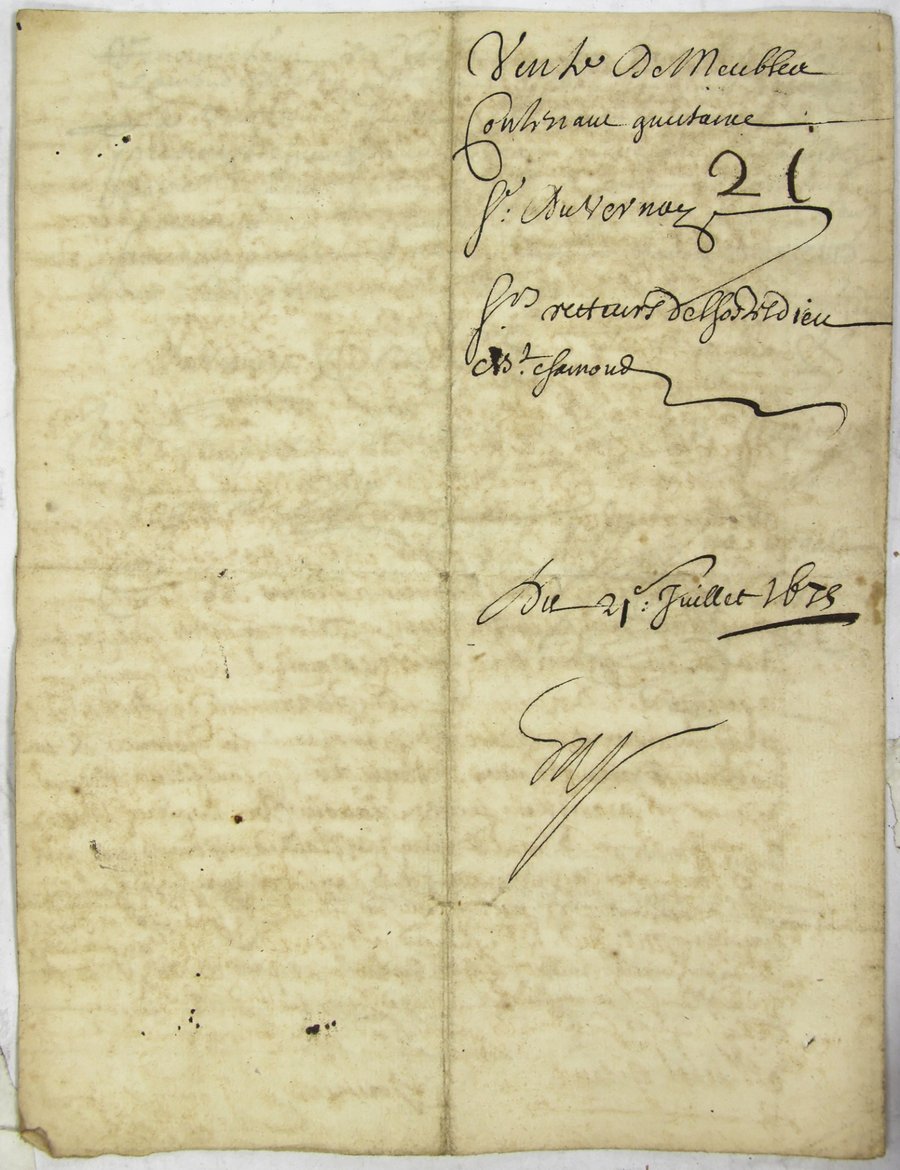 Vente De Meubles
Contenant quittance
21
Sr. Duvernay
Srs recteurs de lhostel dieu
St. chamond
Du 21e. Juillet 1675